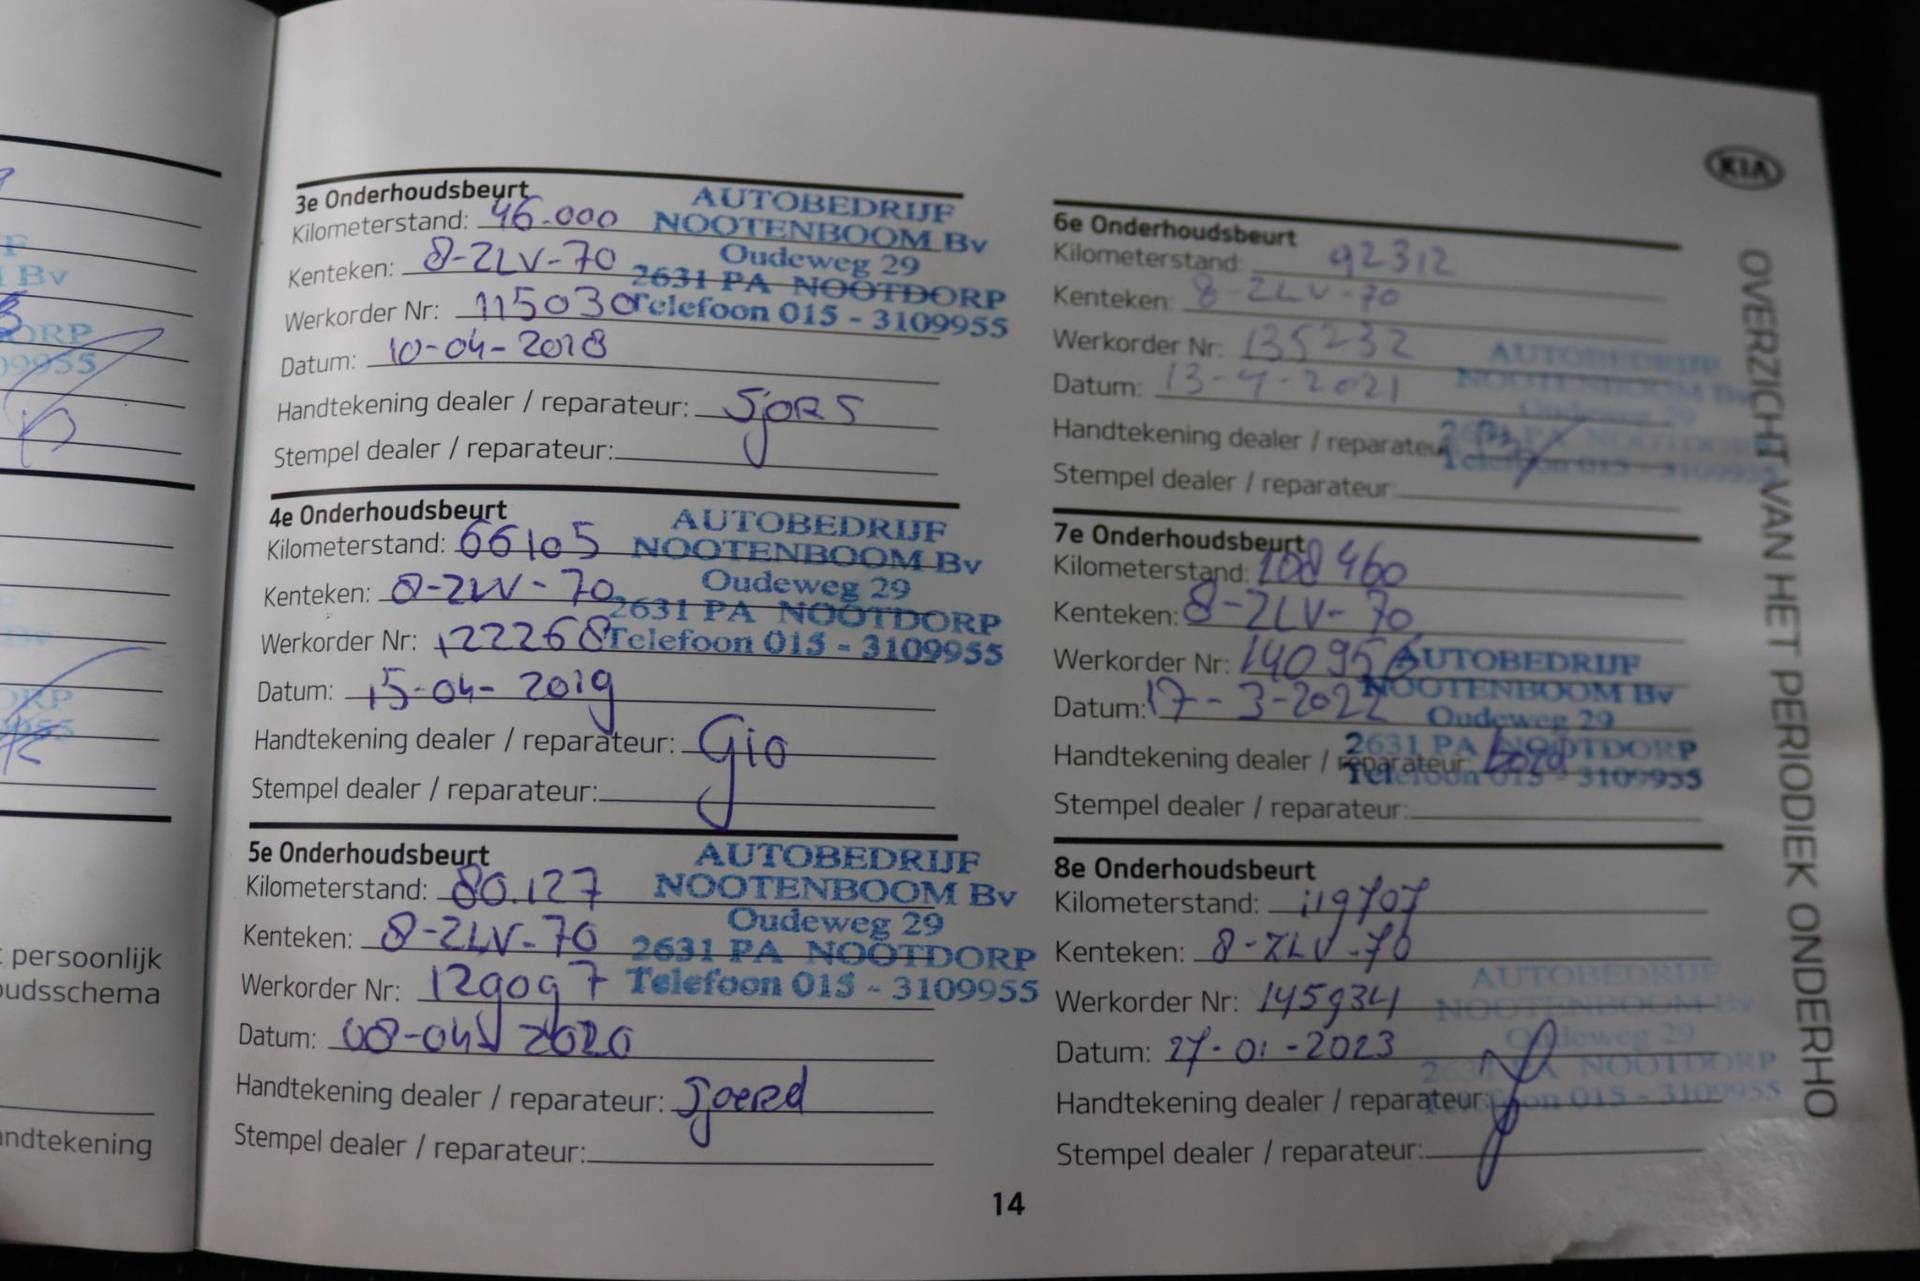 F
Bv
DORP
09955
ORP
persoonlijk
oudsschema
andtekening
3e Onderhoudsbeurt
Kilometerstand: 46.000
Kenteken: 8-ZLV-70
Werkorder Nr: 115030
Datum: 10-04-2018
Handtekening dealer / reparateur: Sjors
Stempel dealer / reparateur:
AUTOBEDRIJF
NOOTENBOOM Bv
Oudeweg 29
2631 PA NOOTDORP
Telefoon 015 - 3109955
4e Onderhoudsbeurt
Kilometerstand: 66105
Kenteken: 8-ZLV-70
Werkorder Nr: 122268
Datum: 15-04-2019
Handtekening dealer / reparateur: Gio
Stempel dealer / reparateur:
AUTOBEDRIJF
NOOTENBOOM Bv
Oudeweg 29
2631 PA NOOTDORP
Telefoon 015 - 3109955
5e Onderhoudsbeurt
Kilometerstand: 80.127
Kenteken: 8-ZLV-70
Werkorder Nr: 129097
Datum: 08-04-2020
Handtekening dealer / reparateur: Sjoerd
Stempel dealer / reparateur:
AUTOBEDRIJF
NOOTENBOOM Bv
Oudeweg 29
2631 PA NOOTDORP
Telefoon 015 - 3109955
6e Onderhoudsbeurt
Kilometerstand: 92312
Kenteken: 8-ZLV-70
Werkorder Nr: 135232
Datum: 13-4-2021
Handtekening dealer / reparateur
Stempel dealer / reparateur:
AUTOBEDRIJF
NOOTENBOOM Bv
Oudeweg 29
2631 PA NOOTDORP
Telefoon 015 - 3109955
7e Onderhoudsbeurt
Kilometerstand: 108460
Kenteken: 8-ZLV-70
Werkorder Nr: 140956
Datum: 17-3-2022
Handtekening dealer / reparateur:
Stempel dealer / reparateur:
AUTOBEDRIJF
NOOTENBOOM Bv
Oudeweg 29
2631 PA NOOTDORP
Telefoon 015 - 3109955
8e Onderhoudsbeurt
Kilometerstand: 119707
Kenteken: 8-ZLV-70
Werkorder Nr: 145934
Datum: 27-01-2023
Handtekening dealer / reparateur:
Stempel dealer / reparateur:
AUTOBEDRIJF
NOOTENBOOM Bv
Oudeweg 29
2631 PA NOOTDORP
Telefoon 015 - 3109955
KIA
OVERZICHT VAN HET PERIODIEK ONDERHO
14